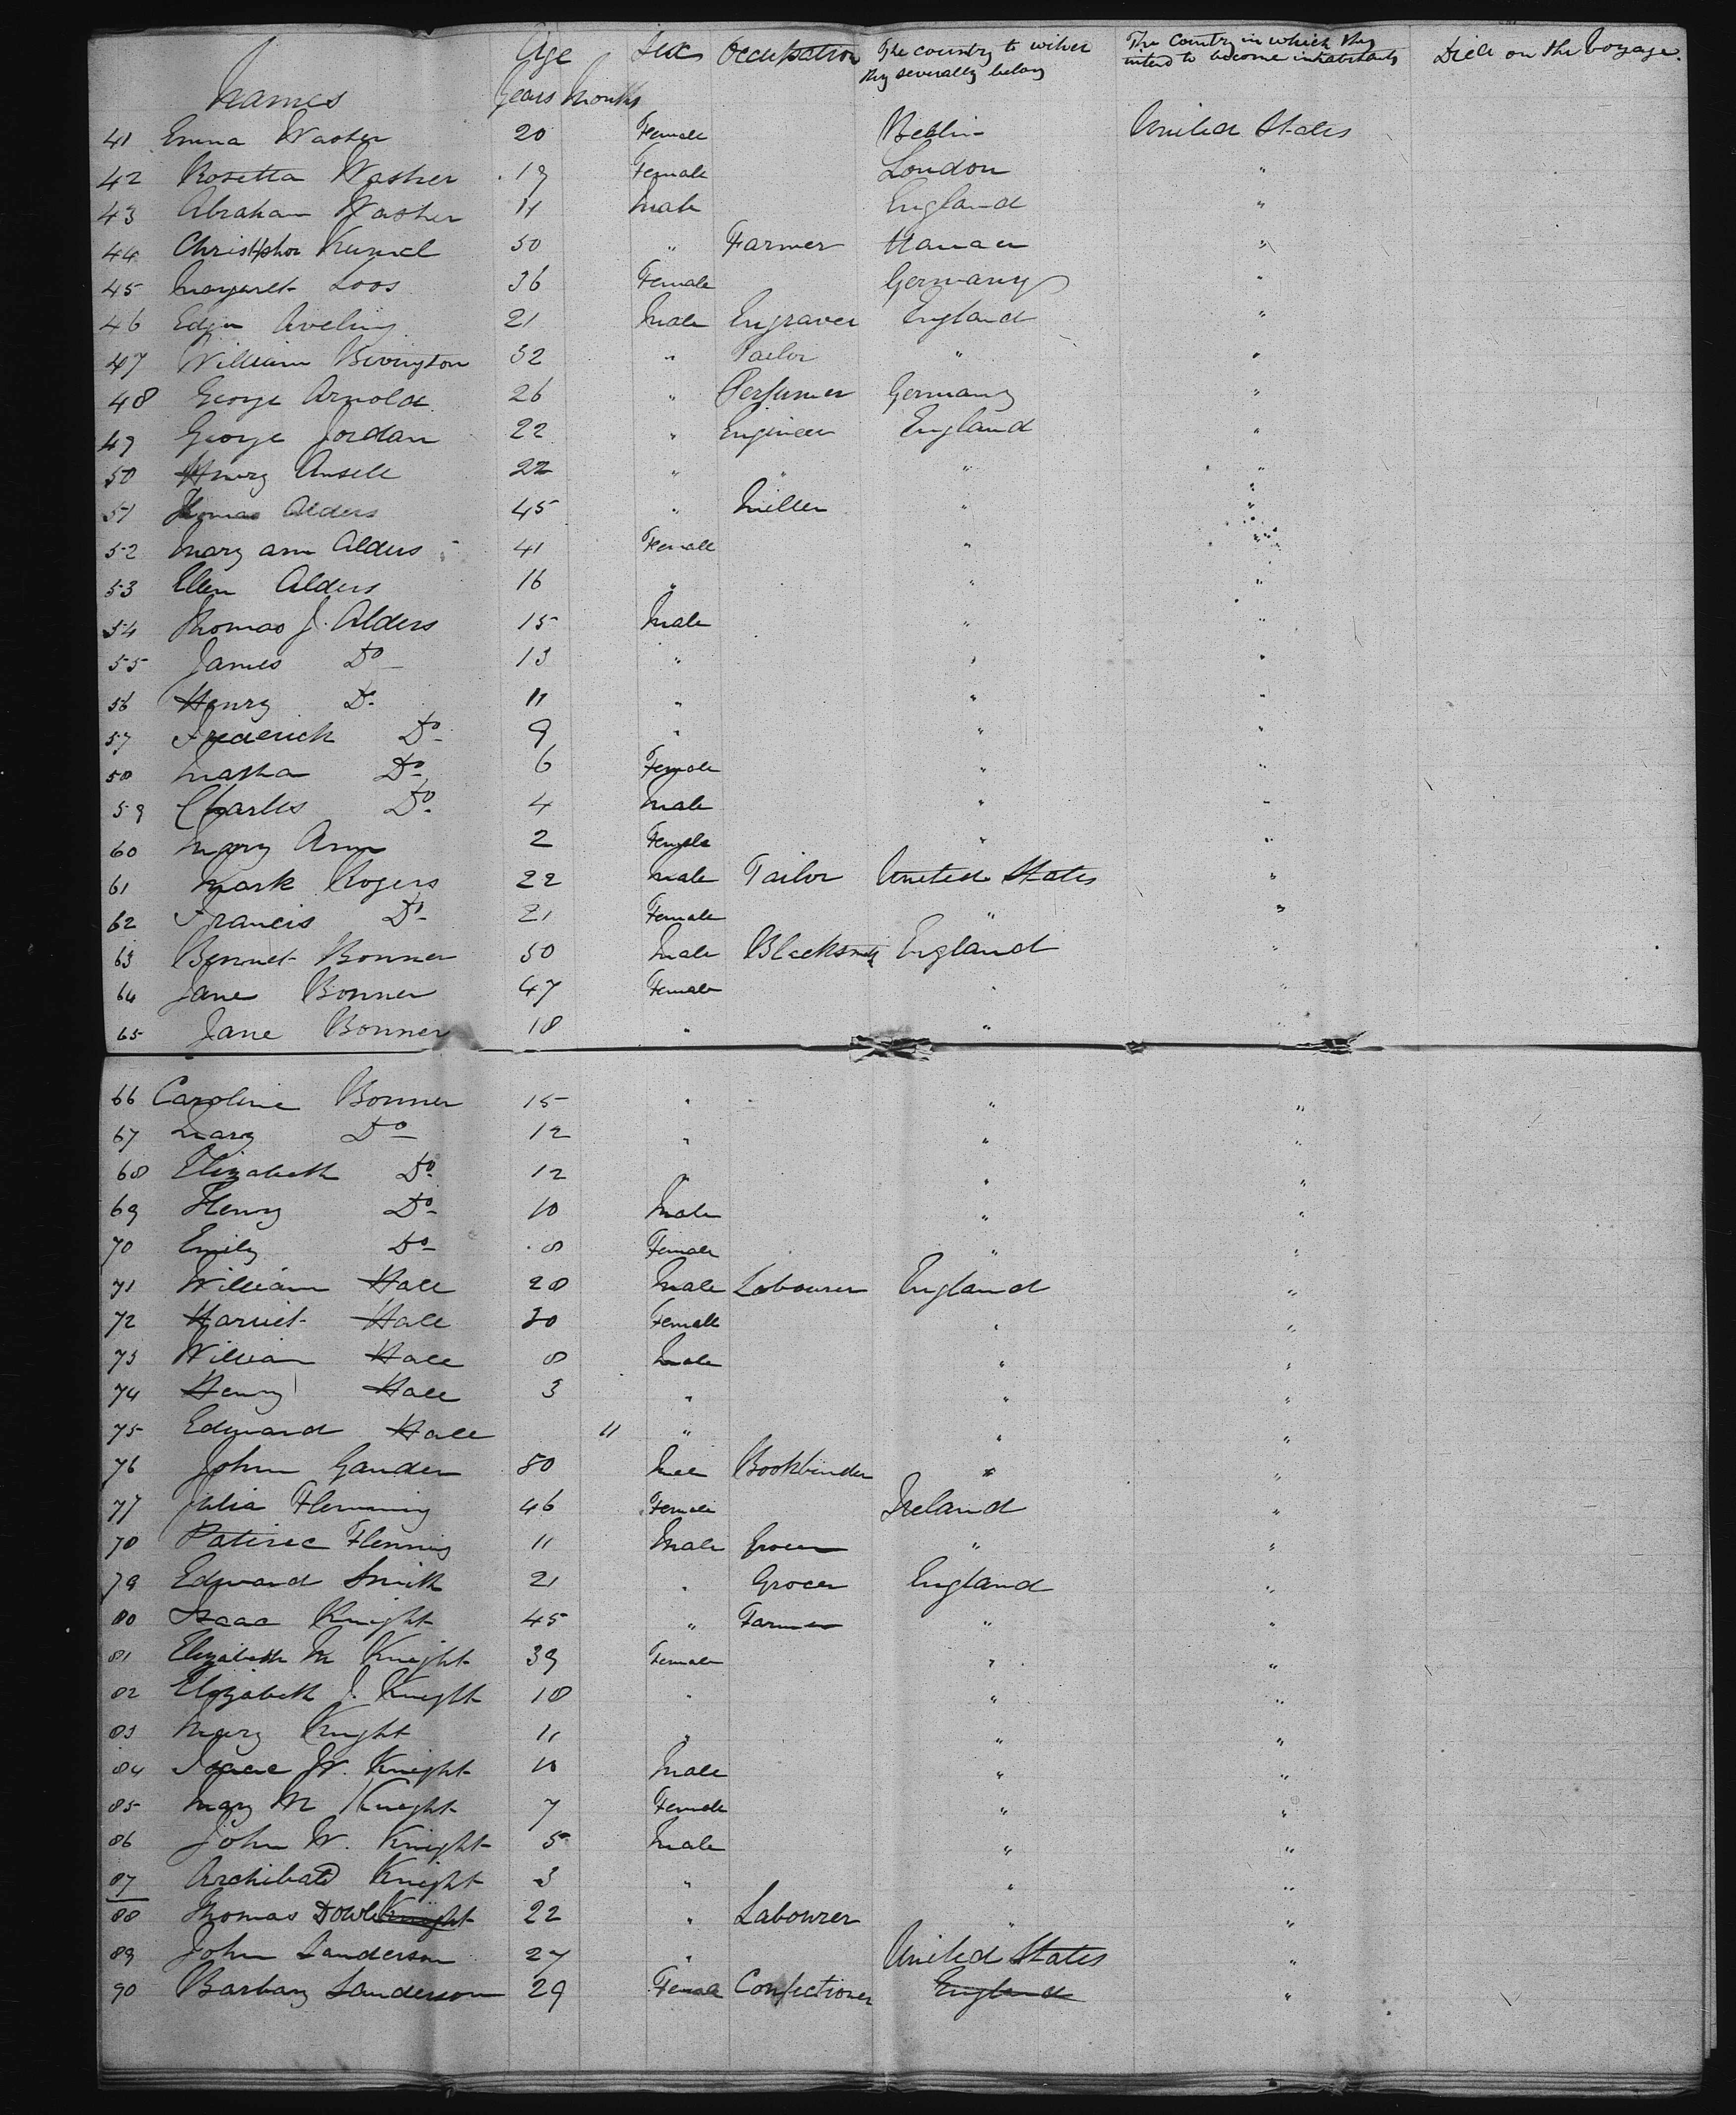 Names Age Years Months Sex Occupation The country to which they severally belong The Country in which they intend to become inhabitants Died on the Voyage.
41 Emma Washer 20 Female Berlin United States
42 Rosetta Washer 19 Female London "
43 Abraham Washer 11 Male England "
44 Christopher Kunkel 50 " Farmer Hanau "
45 Margaret Loos 36 Female Germany "
46 Edgar Aveling 21 Male Engraver England "
47 William Bevington 32 " Tailor " "
48 George Arnold 26 " Perfumer Germany "
49 George Jordan 22 " Engineer England "
50 Henry Ansell 22 " " " "
51 Thomas Alders 45 " Miller " "
52 Mary ann Alders 41 Female " "
53 Ellen Alders 16 " " "
54 Thomas J. Alders 15 Male " "
55 James Do 13 " " "
56 Henry Do 11 " " "
57 Frederick Do 9 " " "
58 Martha Do 6 Female " "
59 Charles Do 4 Male " "
60 Mary Ann 2 Female " "
61 Mark Rogers 22 Male Tailor United States "
62 Francis Do 21 Female " "
63 Bennet Bonner 50 Male Blacksmith England "
64 Jane Bonner 47 Female " "
65 Jane Bonner 18 " "
66 Caroline Bonner 15 " " "
67 Mary Do 12 " " "
68 Elizabeth Do 12 " " "
69 Henry Do 10 Male " "
70 Emily Do 8 Female " "
71 William Hall 28 Male Labourer England "
72 Harriet Hall 30 Female " "
73 William Hall 8 Male " "
74 Henry Hall 3 " " "
75 Edward Hall 11 " " "
76 John Gander 50 Male Bookbinder " "
77 Julia Flemming 46 Female Ireland "
78 Patrick Fleming 11 Male Grocer " "
79 Edward Smith 21 " Grocer England "
80 Isaac Knight 45 " Farmer " "
81 Elizabeth M Knight 39 Female " "
82 Elizabeth J. Knight 18 " " "
83 Mary Knight 11 " " "
84 Isaac W. Knight 10 Male " "
85 Mary M Knight 7 Female " "
86 John W. Knight 5 Male " "
87 Archibald Knight 3 " " "
88 Thomas Dowl Knight 22 " Labourer " "
89 John Sanderson 27 " United States "
90 Barbary Sanderson 29 Female Confectioner England "